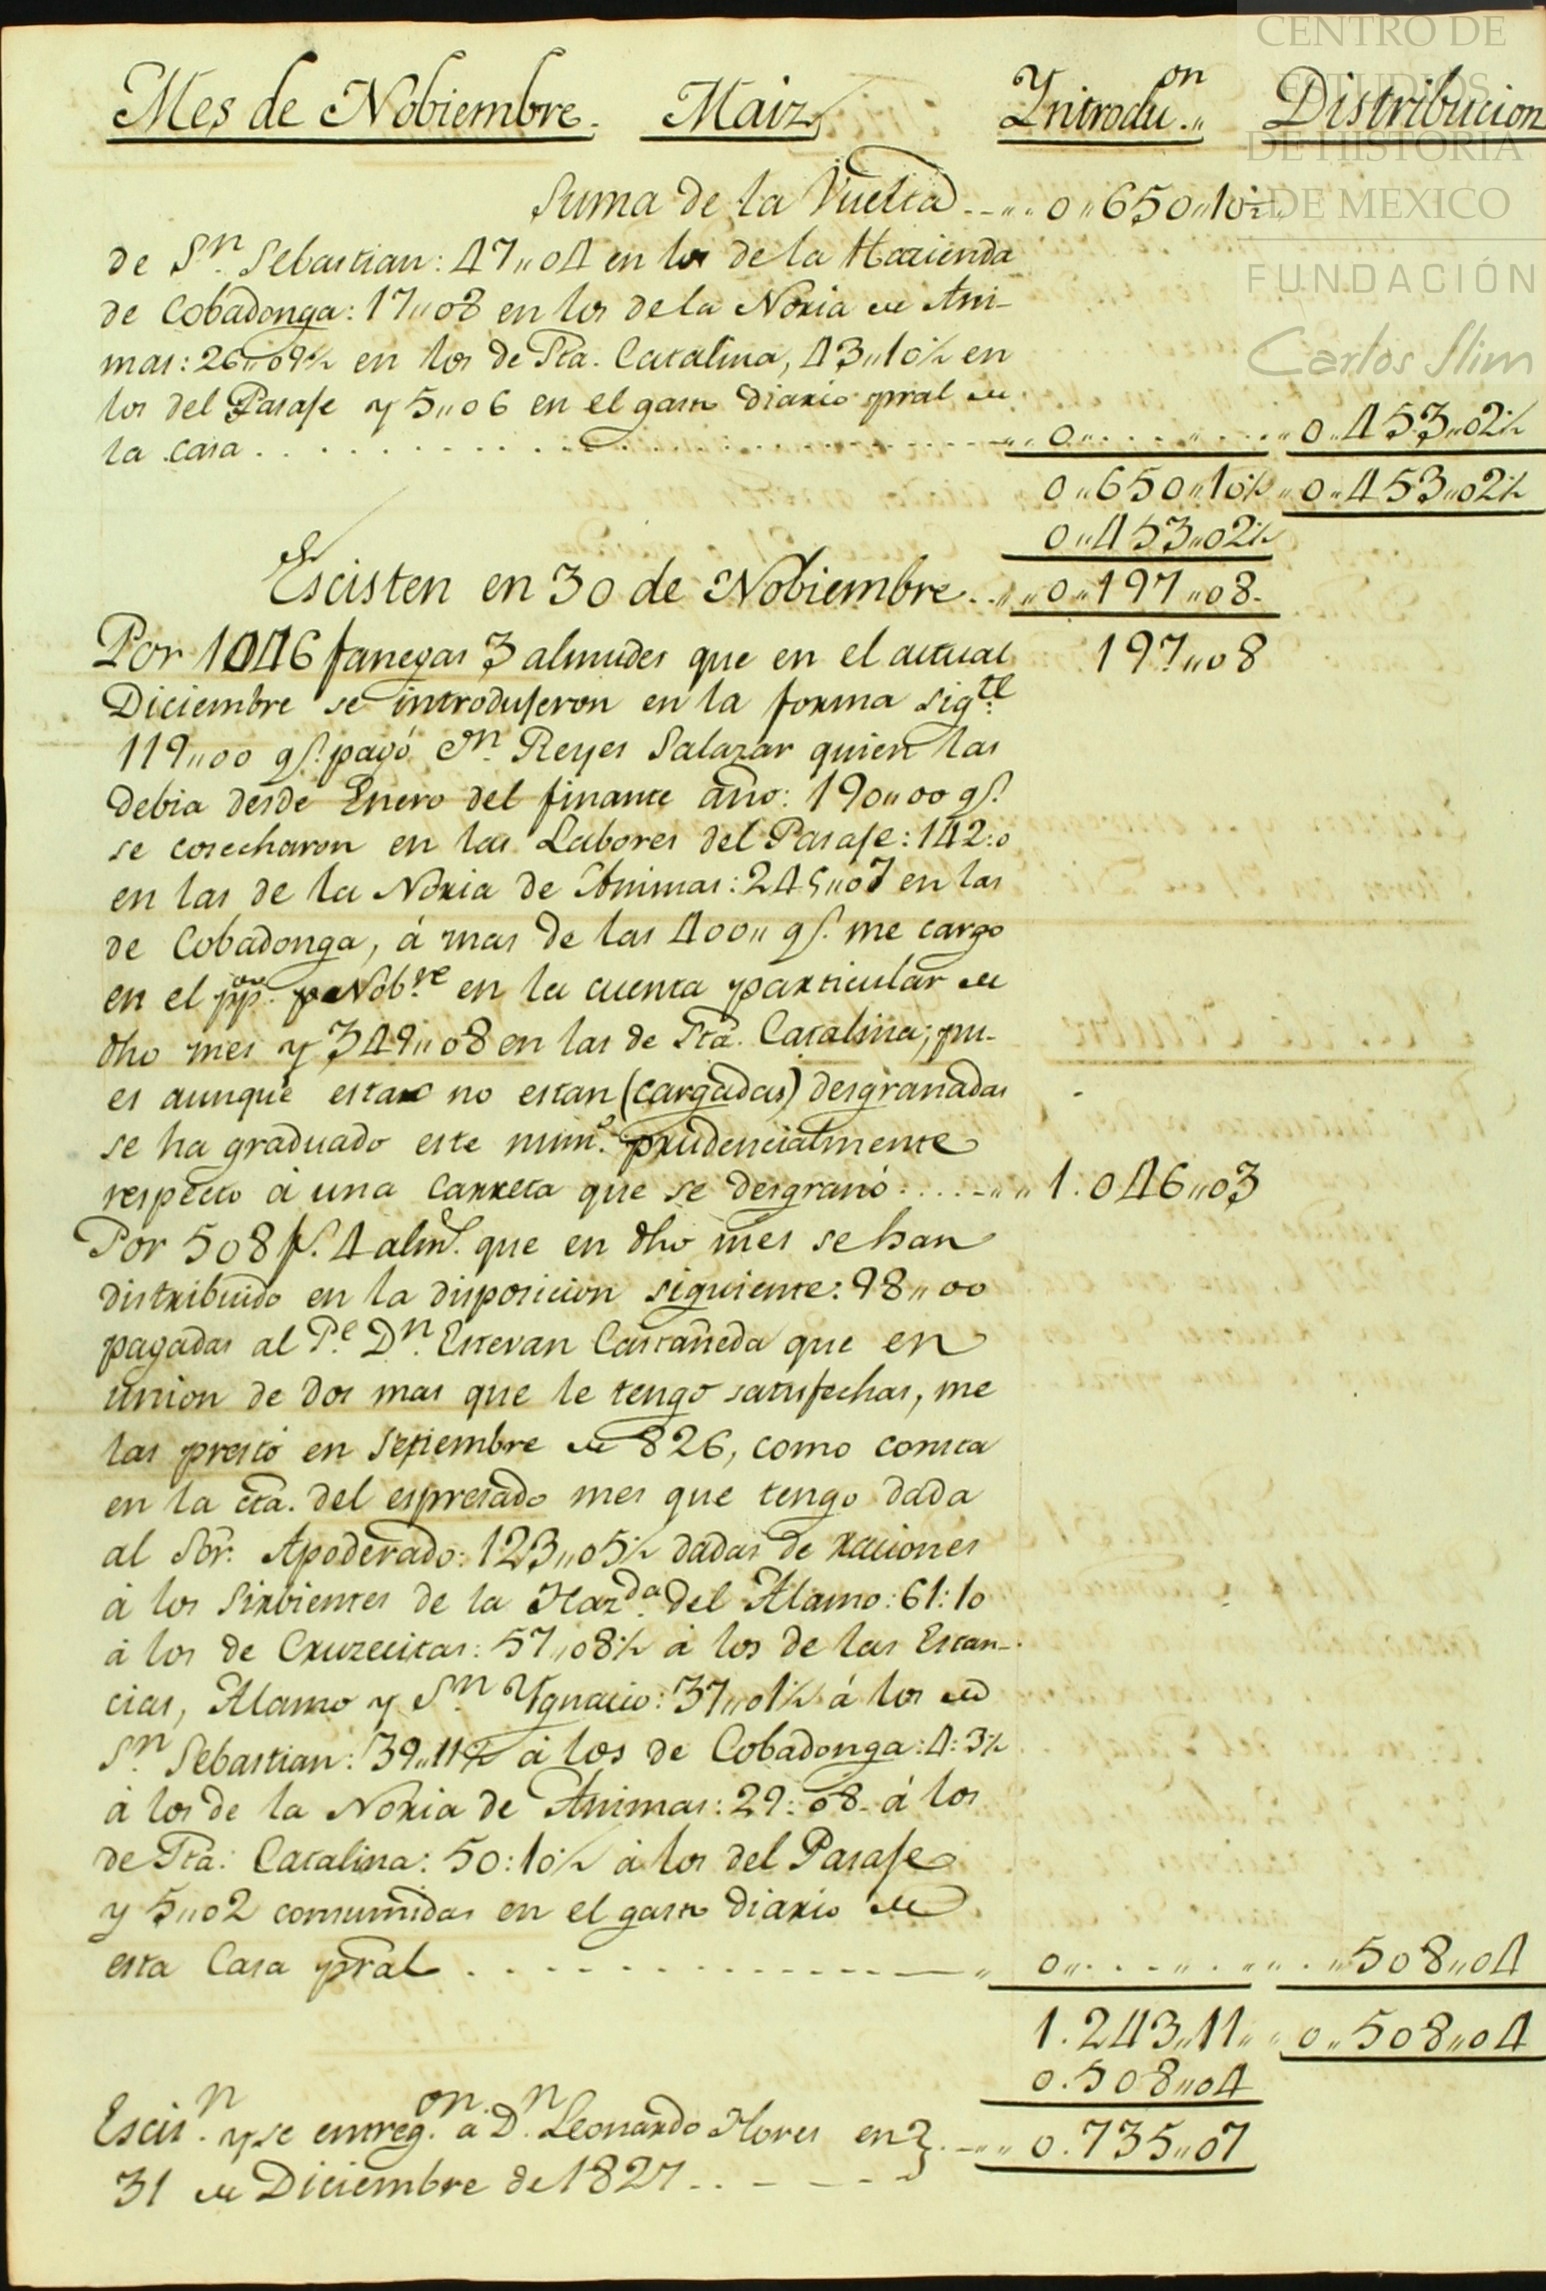 CENTRO DE
ESTUDIOS
DE HISTORIA
DE MEXICO
FUNDACIÓN
Carlos Slim
Mes de Nobiembre. Maiz Yntrodu.on Distribucion
Suma de la Vuelta 0,,650,,10½
de Sn. Sebastian: 47,,04 en los de la Hazienda
de Cobadonga: 17,,08 en los de la Noria de Ani-
mas: 26,,09½ en los de Sta. Catalina, 43,,10½ en
los del Pasaje y 5,,06 en el gasto diario pral de
la casa 0 0,,453,,02½
0,,650,,10½ 0,,453,,02½
0,,453,,02½
Escisten en 30 de Nobiembre 0,,197,,08
Por 1046 fanegas 3 almudes que en el actual 197,,08
Diciembre se introdujeron en la forma sigte.
119,,00 qs. pagó Dn. Reyes Salazar quien las
debia desde Enero del finante año: 190,,00 qs.
se cosecharon en las Labores del Pasaje: 142:0
en las de la Noria de Animas: 245,,07 en las
de Cobadonga, á mas de las 400,, qs. me cargo
en el ppo. Nobre en la cuenta particular de
dho mes y 349,,08 en las de Sta. Catalina; pu-
es aunque estas no estan (cargadas) desgranadas
se ha graduado este numo. prudencialmente
respecto á una Carreta que se desgranó 1.046,,03
Por 508 fs. 4 alms. que en dho mes se han
distribuido en la disposicion siguiente: 98,,00
pagadas al Pe. Dn. Estevan Castañeda que en
union de dos mas que le tengo satisfechas, me
las prestó en Septiembre de 826, como consta
en la cta. del espresado mes que tengo dada
al Sor. Apoderado: 123,,05½ dadas de raciones
á los Sirbientes de la Hazda. del Alamo: 61:10
á los de Cruzecitas: 57,,08½ á los de las Estan-
cias, Alamo y Sn. Ygnacio: 37,,01½ á los de
Sn. Sebastian: 39,,11½ á los de Cobadonga: 4:3½
á los de la Noria de Animas: 29:08 á los
de Sta. Catalina: 50:10½ á los del Pasaje
y 5,,02 consumidas en el gasto diario de
esta Casa pral 0 508,,04
1.243,,11 0,,508,,04
0.508,,04
Escisn. y se entregon. á Dn. Leonardo Flores en 0.735,,07
31 de Diciembre de 1827